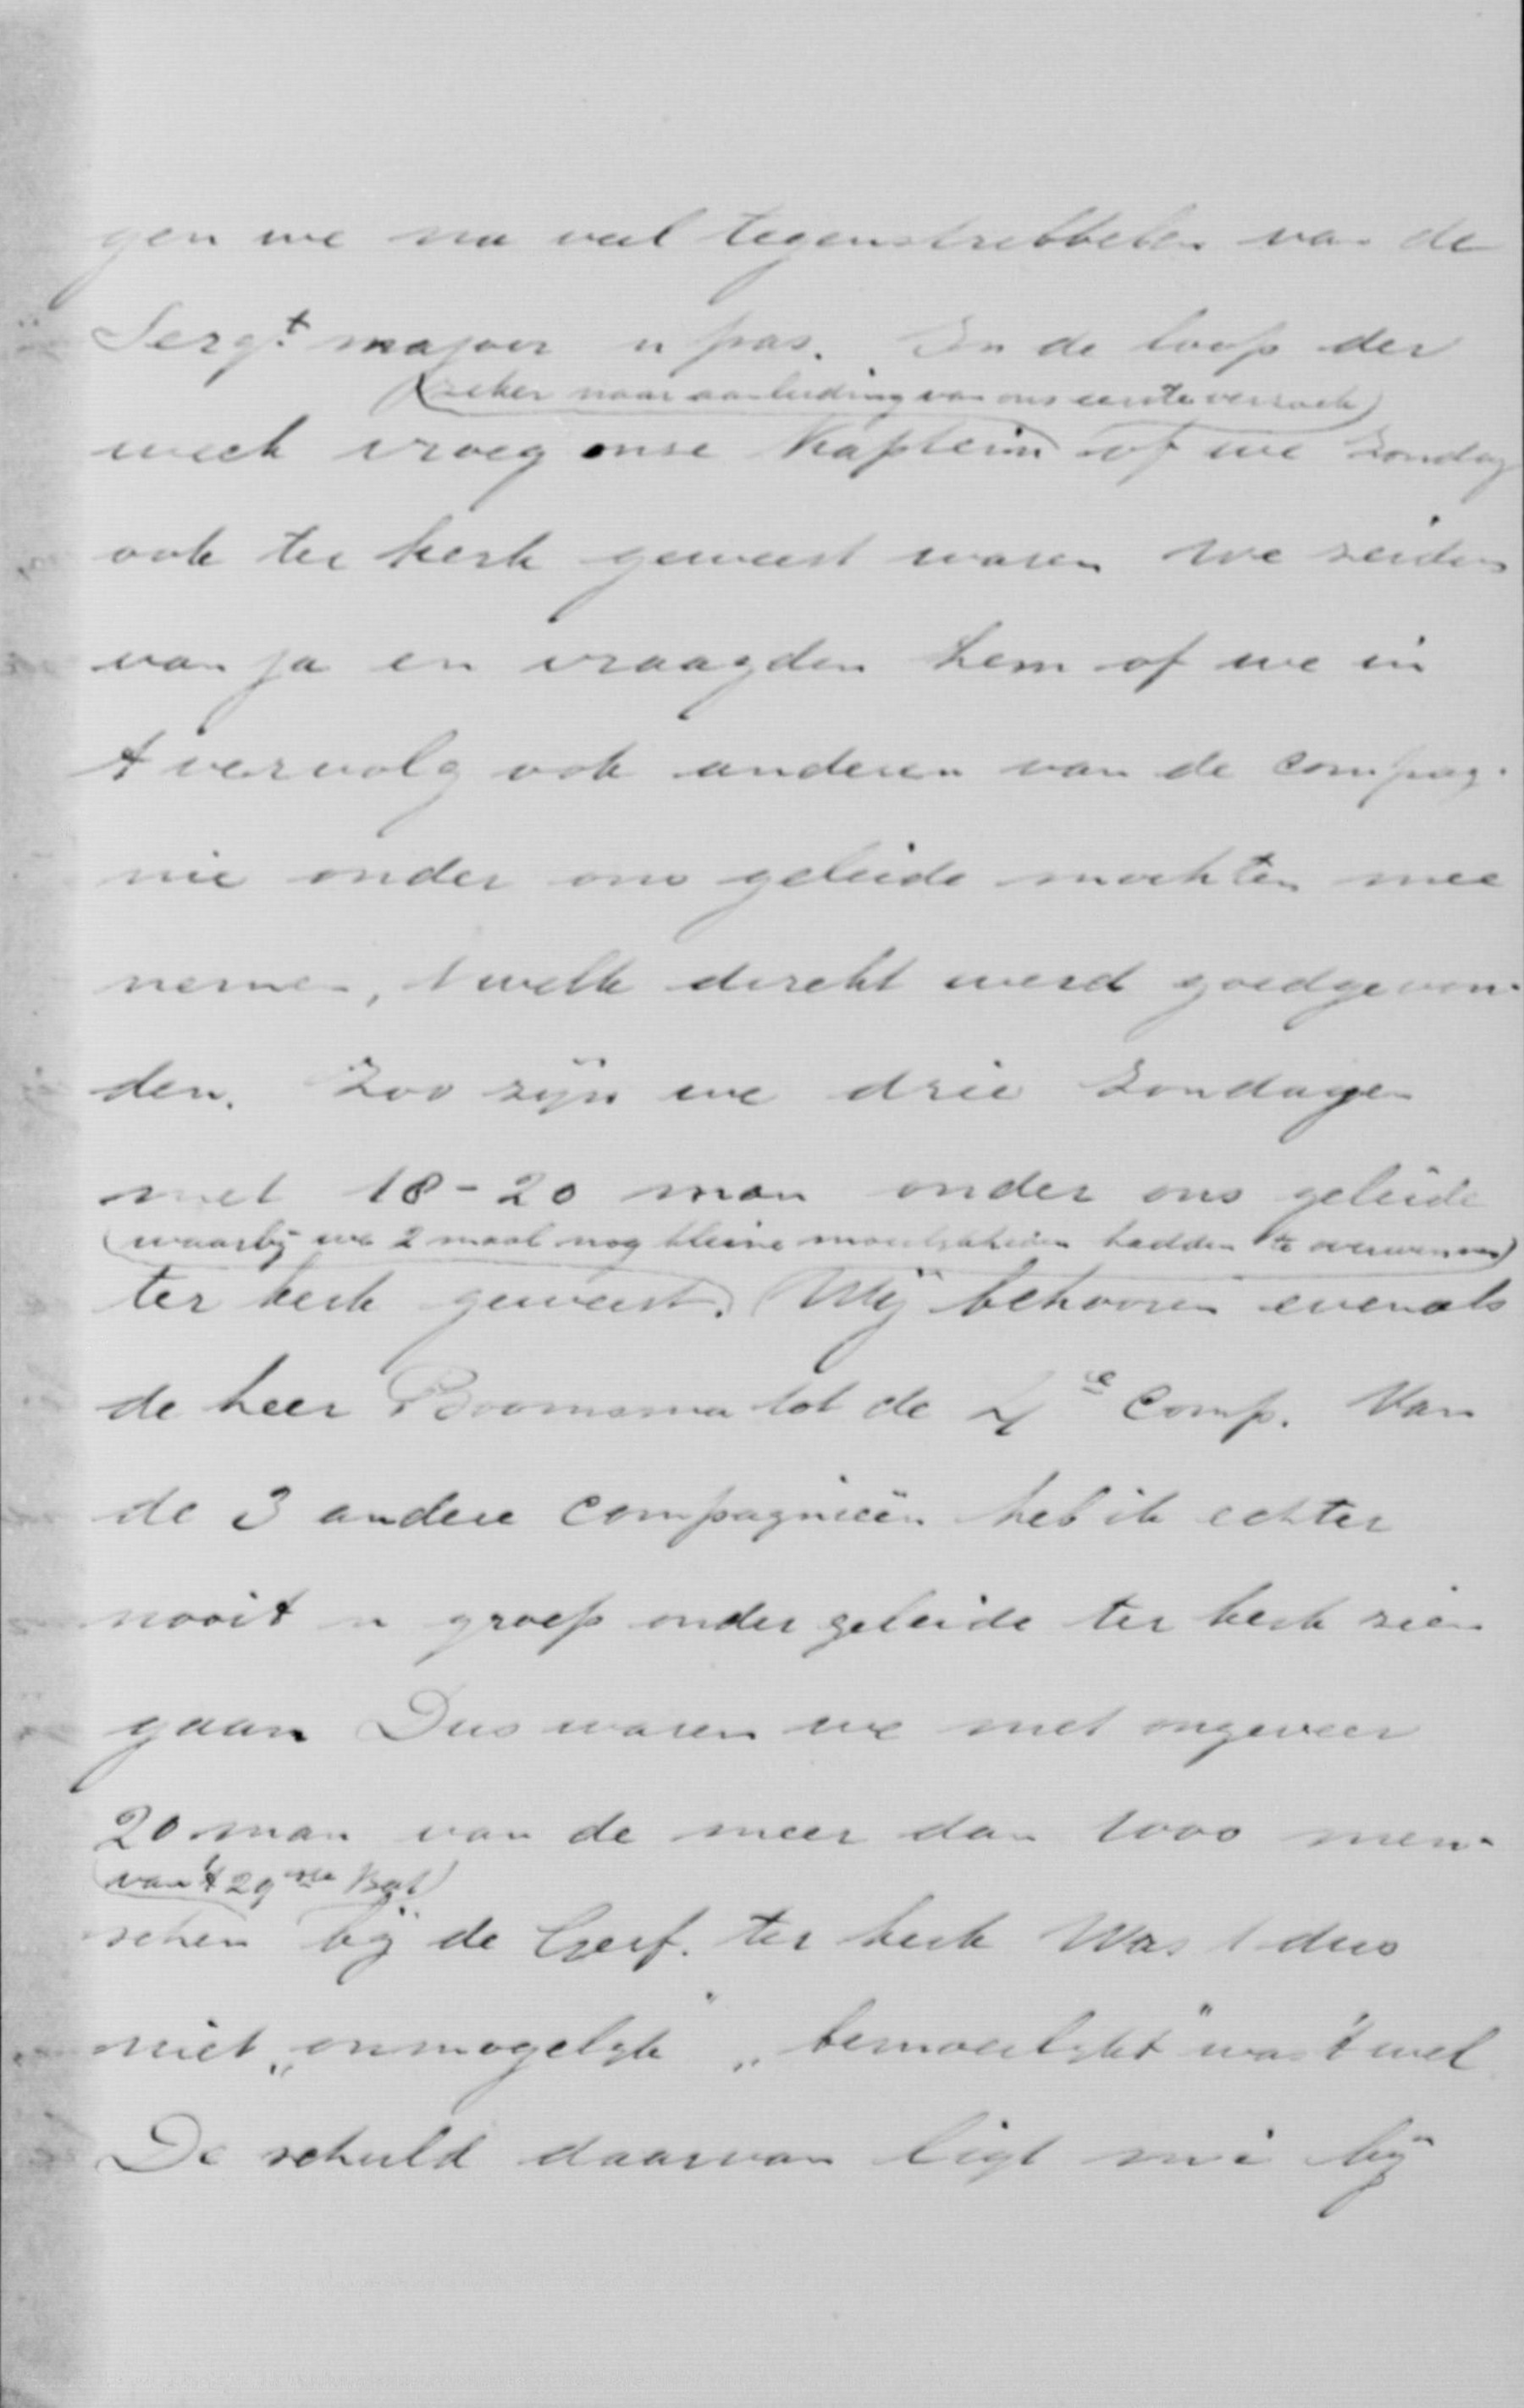 gen we na veel tegenstribbelen van de
Sergt majoor n pas. In de loop der
(zeker naar aanleiding van ons eerste verzoek)
week vroeg onse Kaptein of we Zondag
ook ter kerk geweest waren We zeiden
van ja en vraagden hem of we in
t vervolg ook anderen van de compag-
nie onder ons geleide mochten mee
nemen, t welk direkt werd goedgevon-
den. Zoo zijn we drie Zondagen
met 18-20 man onder ons geleide
(waarbij we 2 maal nog kleine moeilijkheden hadden te overwinnen)
ter kerk geweest. Wij behooren evenals
de heer Boomsma tot de 4e Comp. Van
de 3 andere compagnieën heb ik echter
nooit n groep onder geleide ter kerk zien
gaan Dus waren we met ongeveer
20 man van de meer dan 1000 men-
(van 't 29ste Bat)
schen bij de Geref. ter kerk Was t dus
niet „onmogelijk" „bemoeilijkt" was 't wel
De schuld daarvan ligt bij